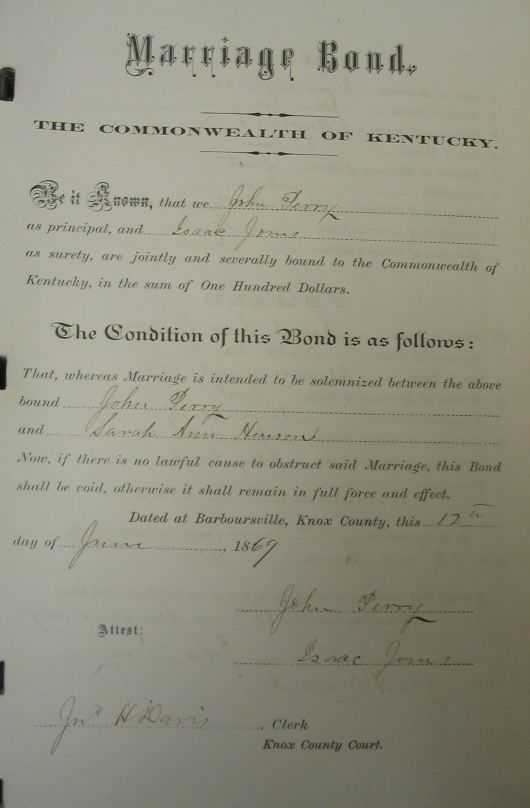 Marriage Bond.
THE COMMONWEALTH OF KENTUCKY.
Be it Known, that we John Perry
as principal, and Isaac Jones
as surety, are jointly and severally bound to the Commonwealth of
Kentucky, in the sum of One Hundred Dollars.
The Condition of this Bond is as follows:
That, whereas Marriage is intended to be solemnized between the above
bound John Perry
and Sarah Ann Henson
Now, if there is no lawful cause to obstruct said Marriage, this Bond
shall be void, otherwise it shall remain in full force and effect.
Dated at Barboursville, Knox County, this 12th
day of June, 1869
John Perry
Attest:
Isaac Jones
Jno H Davis, Clerk
Knox County Court.